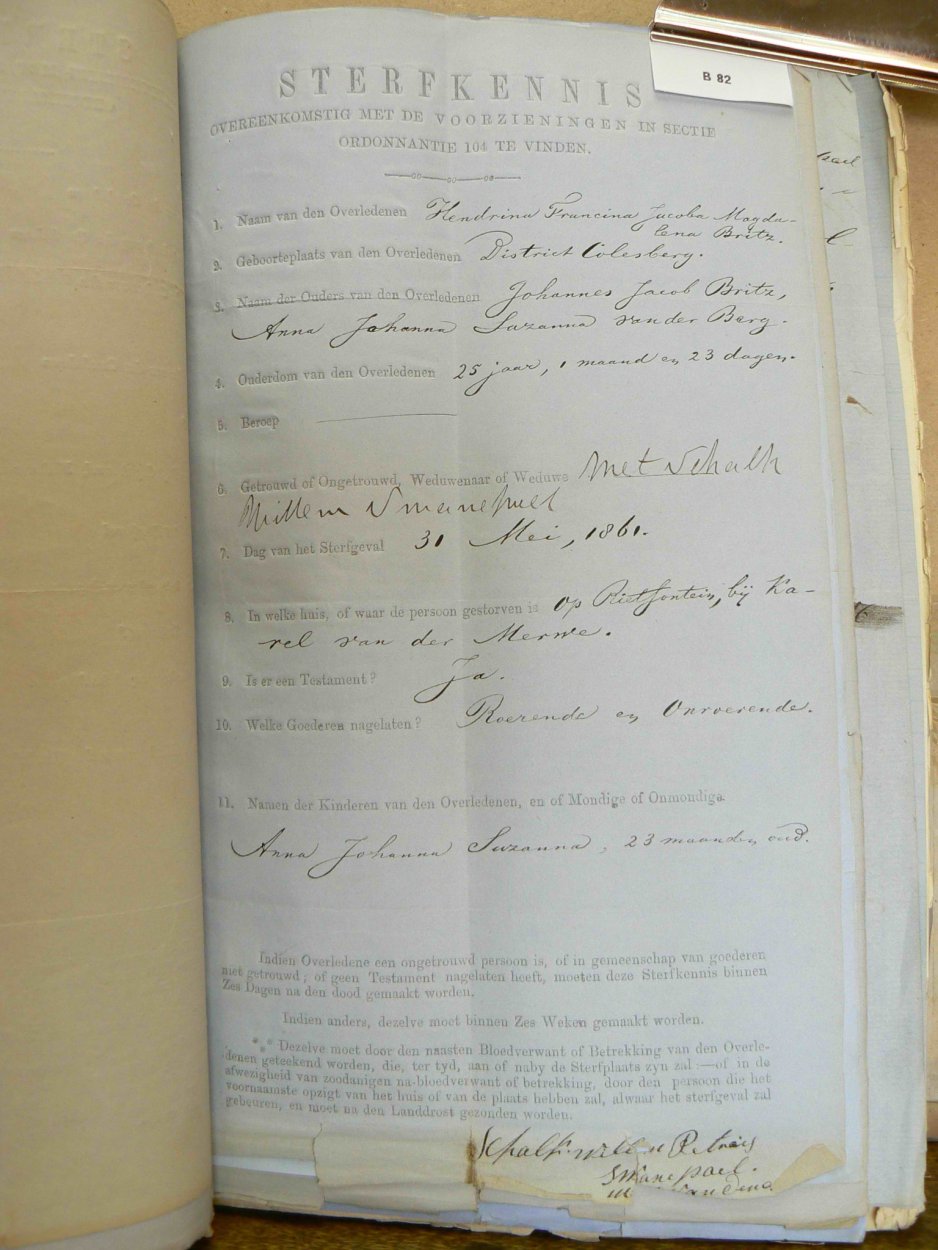 B 82
STERFKENNIS
OVEREENKOMSTIG MET DE VOORZIENINGEN IN SECTIE
ORDONNANTIE 104 TE VINDEN.
1. Naam van den Overledenen Hendrina Francina Jacoba Magda-
lena Britz.
2. Geboorteplaats van den Overledenen District Colesberg.
3. Naam der Ouders van den Overledenen Johannes Jacob Britz,
Anna Johanna Suzanna van der Berg.
4. Ouderdom van den Overledenen 25 jaar, 1 maand en 23 dagen.
5. Beroep
6. Getrouwd of Ongetrouwd, Weduwenaar of Weduwe Met Schalk
Willem Smanepoel
7. Dag van het Sterfgeval 31 Mei, 1861.
8. In welke huis, of waar de persoon gestorven is op Rietfontein, bij Ka-
rel van der Merwe.
9. Is er een Testament? Ja.
10. Welke Goederen nagelaten? Roerende en Onroerende.
11. Namen der Kinderen van den Overledenen, en of Mondige of Onmondige.
Anna Johanna Suzanna, 23 maanden oud.
Indien Overledene een ongetrouwd persoon is, of in gemeenschap van goederen
niet getrouwd; of geen Testament nagelaten heeft, moeten deze Sterfkennis binnen
Zes Dagen na den dood gemaakt worden.
Indien anders, dezelve moet binnen Zes Weken gemaakt worden.
*** Dezelve moet door den naasten Bloedverwant of Betrekking van den Overle-
denen geteekend worden, die, ter tyd, aan of naby de Sterfplaats zyn zal:—of in de
afwezigheid van zoodanigen na-bloedverwant of betrekking, door den persoon die het
voornaamste opzigt van het huis of van de plaats hebben zal, alwaar het sterfgeval zal
gebeuren, en moet na den Landdrost gezonden worden.
Schalk Willem Petrus
Smanepoel.